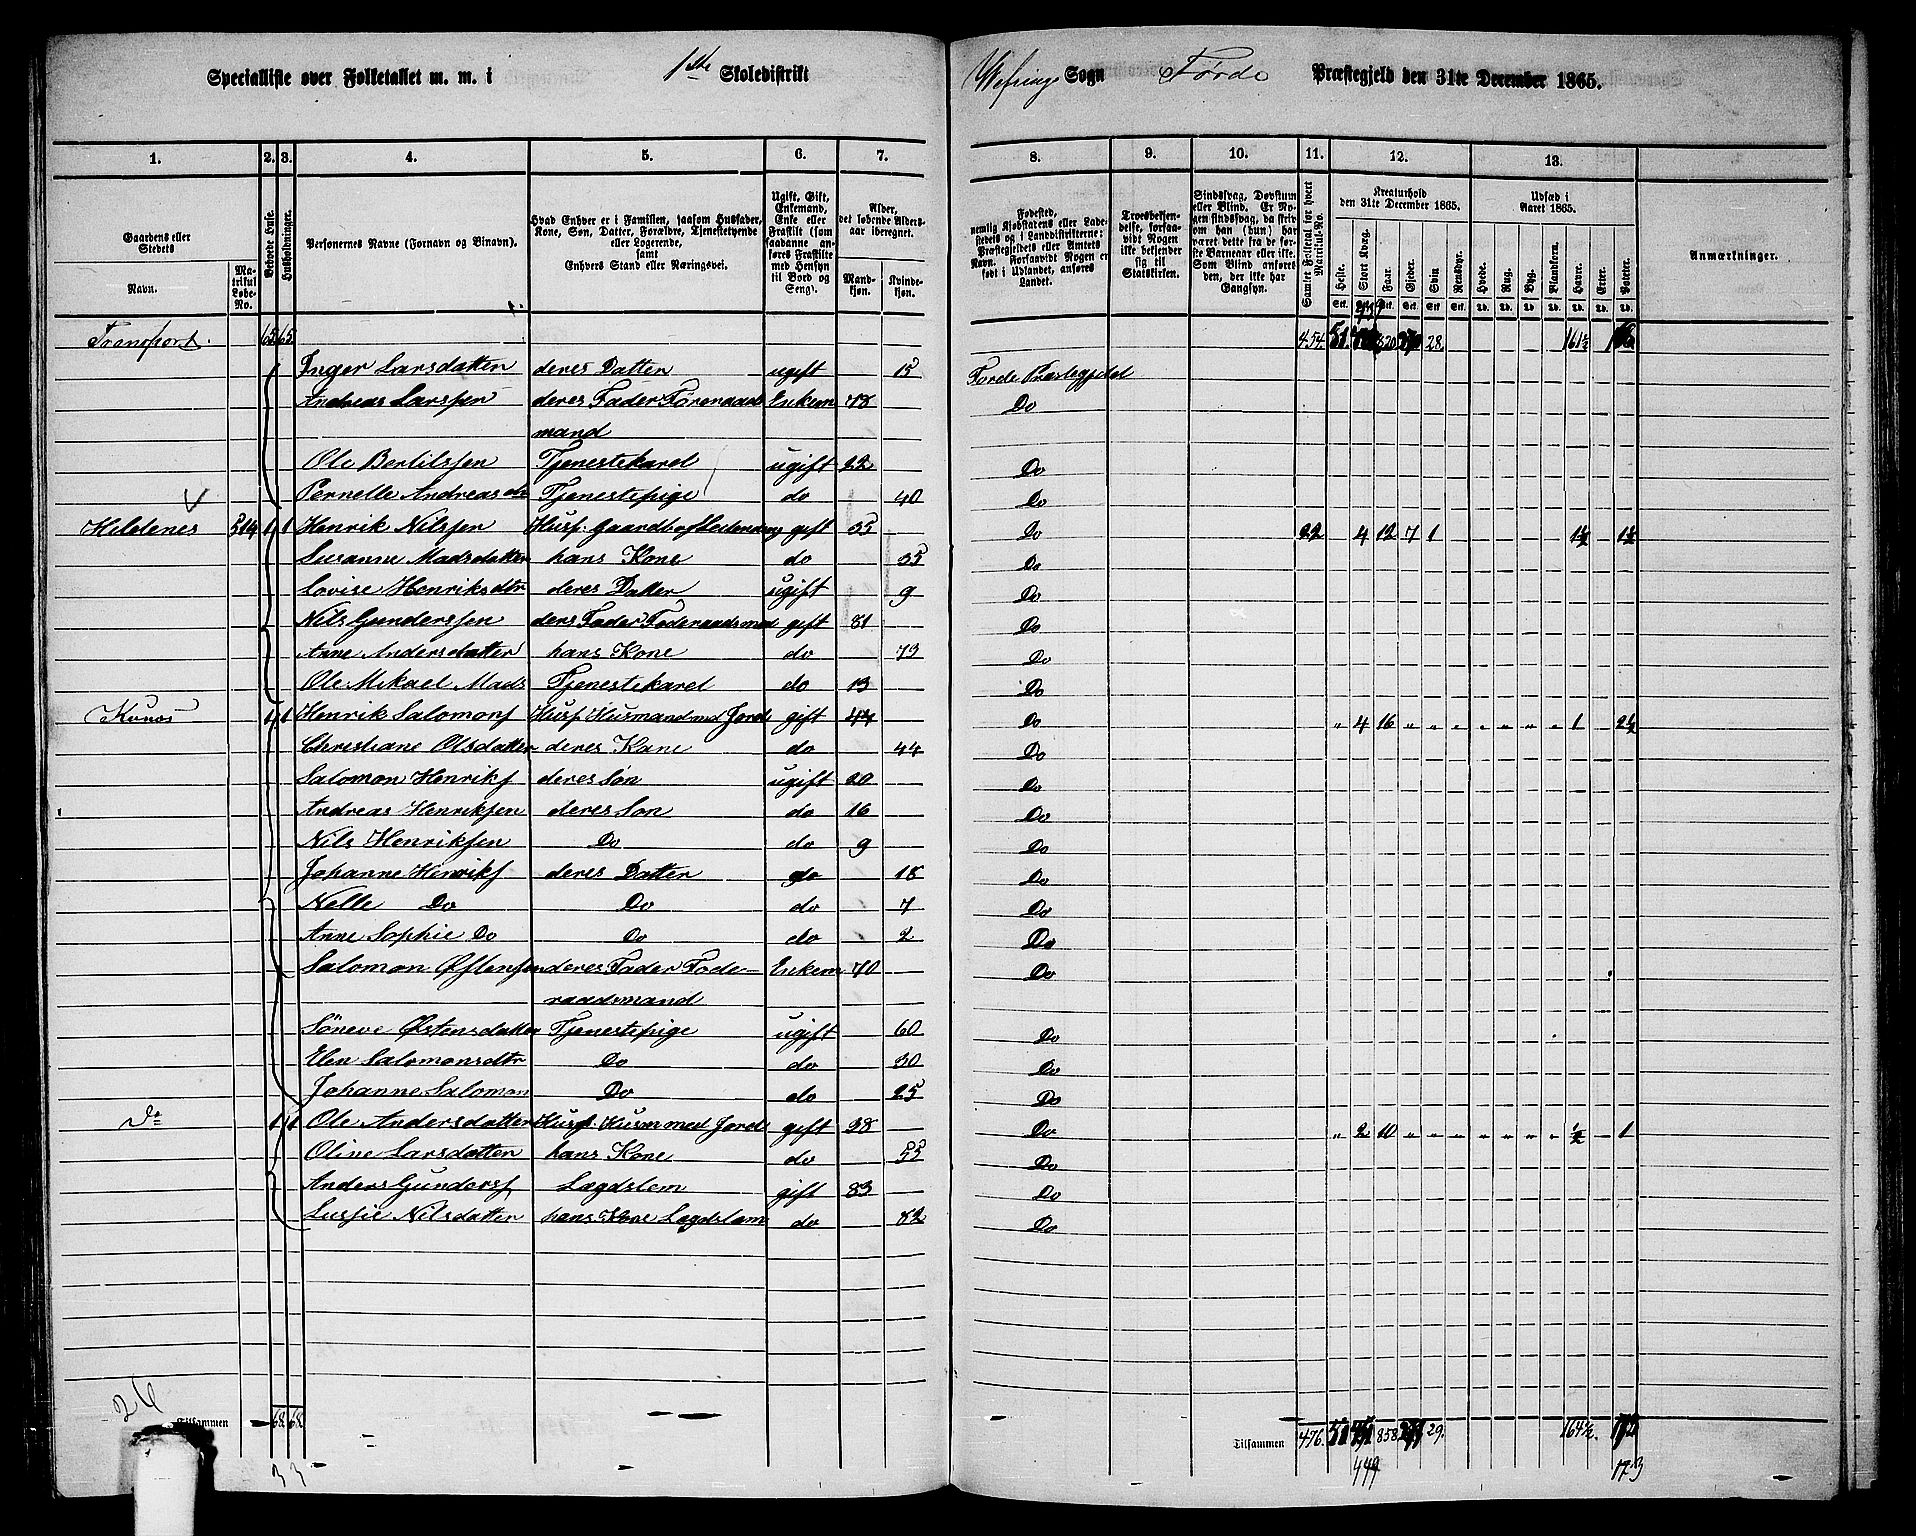 Specialliste over Folketallet m. m. i 1ste Skoledistrikt Vefring Sogn Förde Præstegjeld den 31te December 1865.
1. 2. 3. 4. 5. 6. 7. 8. 9. 10. 11. 12. 13.
Gaardens eller Stedets Navn. Matrikul Løbe-No.
Bebode Huse.
Husholdninger.
Personernes Navne (Fornavn og Binavn).
Hvad Enhver er i Familien, saasom Husfader, Kone, Søn, Datter, Forældre, Tjenestetyende eller Logerende, samt Enhvers Stand eller Næringsvei.
Ugift, Gift, Enkemand, Enke eller Fraskilt (som saadanne anføres Fraskilte med Hensyn til Bord og Seng).
Alder, det løbende Aldersaar iberegnet. Mandkjøn. Kvindekjøn.
Fødested, nemlig Kjøbstadens eller Ladestedets og i Landdistrikterne: Præstegjeldets eller Amtets Navn. Forsaavidt Nogen er født i Udlandet, anføres Landet.
Troesbekjendelse, forsaavidt Nogen ikke bekjender sig til Statskirken.
Sindssvag, Døvstum eller Blind. Er Nogen sindssvag, da skrives om han (hun) har været dette fra de første Barneaar eller ikke. Som Blind ansøres den, der ikke har Gangsyn.
Samlet Folketal for hvert Matrikul-No.
Kreaturhold den 31te December 1865. Heste. Stort Kvæg. Faar. Gjeder. Svin. Rensdyr.
Udsæd i Aaret 1865. Hvede. Rug. Byg. Blandkorn. Havre. Erter. Poteter.
Anmærkninger.
Transport. 65 65 454. 51. 820 28. 161½
Inger Larsdatten deres Datten ugift 15 Förde Præstegjdel
Andreas Larssen deres Fader Förenaads Enkem 78 Do
mand
Ole Bertilssen Tjenestekarel ugift 22 Do
Pernelle Andreasdr Tjenestepige do 40 Do
Heldenes 514 1 1 Henrik Nilssen Husf. Gaardb og Lestenmg gift 55 Do 22 4 12 7 1 1½ 1½
Susanne Madsdatter hans Kone do 55 Do
Lovise Henriksdtr deres Datter ugift 9 Do
Nils Gunderssen ders Fader Foderaadsmnd gift 81 Do
Anne Andersdatter hans Kone do 79 Do
Ole Mikael Mads Tjenestekarel do 13 Do
Kvnas 1 1 Henrik Salomons Husf Husmand med Jord gift 44 Do " 4 16 " " " " " " " 1 2½
Christiane Olsdatter deres Kone do 44 Do
Salomon Henriks deres Sön ugift 20 Do
Andreas Henriksen deres Son do 16 Do
Nils Henriksen Do do 9 Do
Johanne Henriks deres Datter do 18 Do
Nelle Do Do do 7 Do
Anne Sophie Do Do do 2 Do
Salomon Östensen deres Fader Fode- Enkem 70 Do
raadsmand
Söneve Östensdatter Tjenestepige ugift 60 Do
Elen Salomonsdtr Do do 30 Do
Johanne Salomon Do do 25 Do
Do 1 1 Ole Andersdatter Husf. Husm med Jord gift 38 Do " 2 10 " " " " " " " ½ 1
Oline Larsdatten hans Kone do 55 Do
Anders Gunders Lægdslem gift 83 Do
Lussie Nilsdatten hans Kone Lægdslem do 82 Do
26
Tilsammen 68. 68. Tilsammen 476. 51 858 29. 164½.
33 449 173